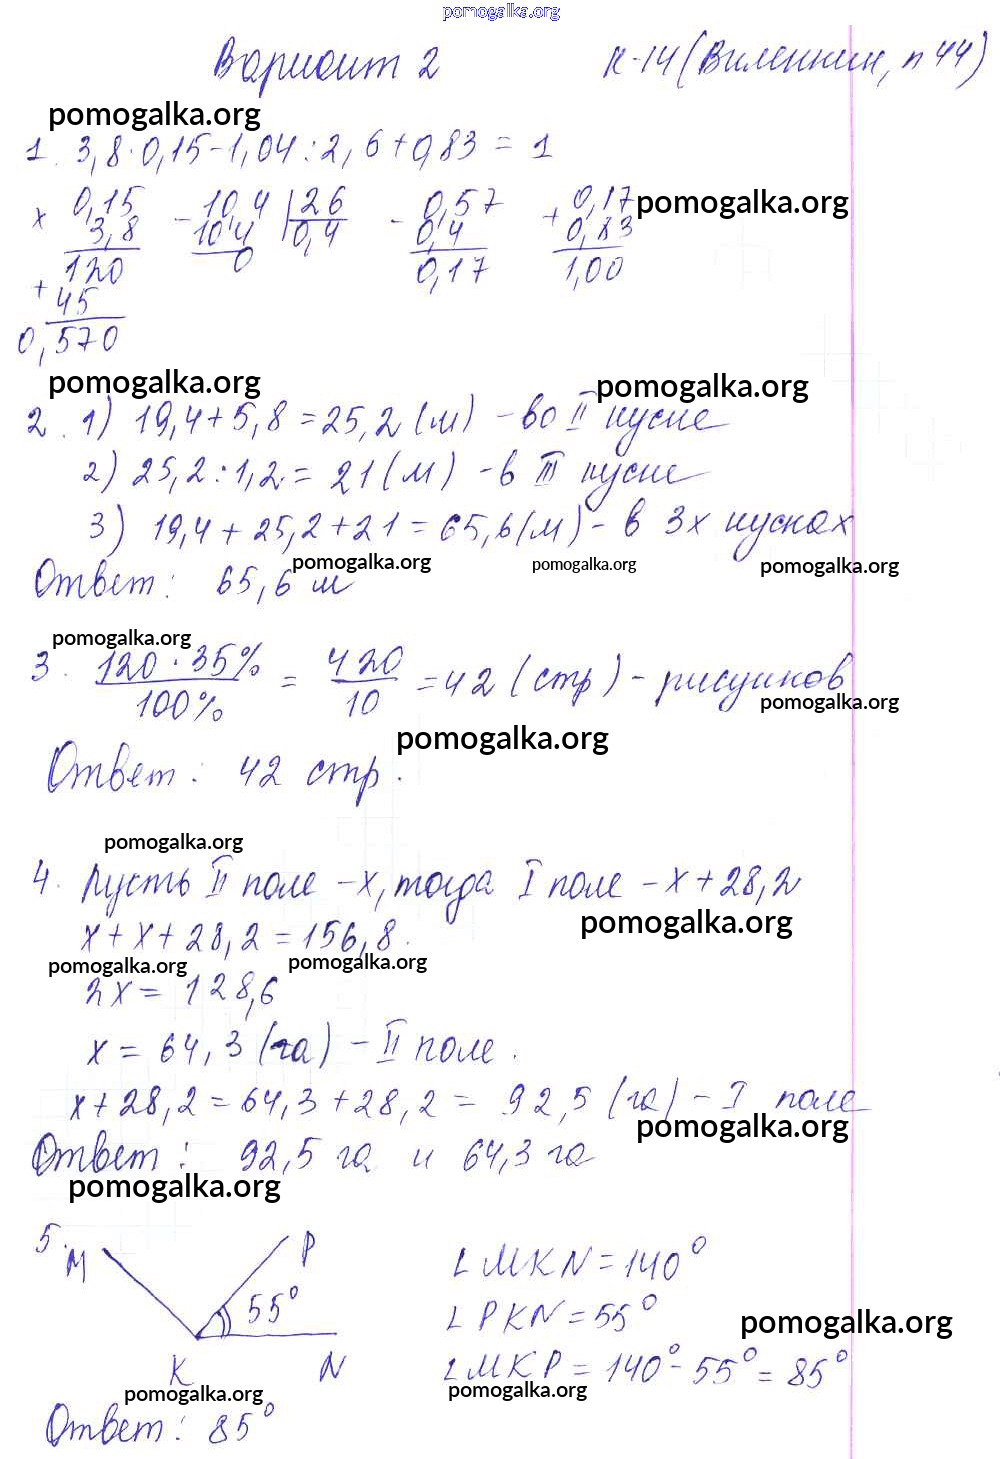 pomogalka.org
Вариант 2 К-14 (Виленкин, п 44)
pomogalka.org
1. 3,8 · 0,15 - 1,04 : 2,6 + 0,83 = 1
× 0,15 - 10,4 | 26 - 0,57 + 0,17 pomogalka.org
3,8 10 4 | 0,4 0,4 0,83
120 0 0,17 1,00
+ 45
0,570
pomogalka.org pomogalka.org
2. 1) 19,4 + 5,8 = 25,2 (м) - во II куске
2) 25,2 : 1,2 = 21 (м) - в III куске
3) 19,4 + 25,2 + 21 = 65,6 (м) - в 3х кусках
pomogalka.org pomogalka.org pomogalka.org
Ответ: 65,6 м
pomogalka.org
3. 120 · 35% / 100% = 420 / 10 = 42 (стр) - рисунков
pomogalka.org
pomogalka.org
Ответ: 42 стр.
pomogalka.org
4. Пусть II поле - x, тогда I поле - x + 28,2
pomogalka.org
x + x + 28,2 = 156,8.
pomogalka.org pomogalka.org
2x = 128,6
x = 64,3 (га) - II поле.
x + 28,2 = 64,3 + 28,2 = 92,5 (га) - I поле
pomogalka.org
Ответ: 92,5 га и 64,3 га
pomogalka.org
5. M P ∠MKN = 140°
55° ∠PKN = 55°
pomogalka.org
K N ∠MKP = 140° - 55° = 85°
pomogalka.org pomogalka.org
Ответ: 85°